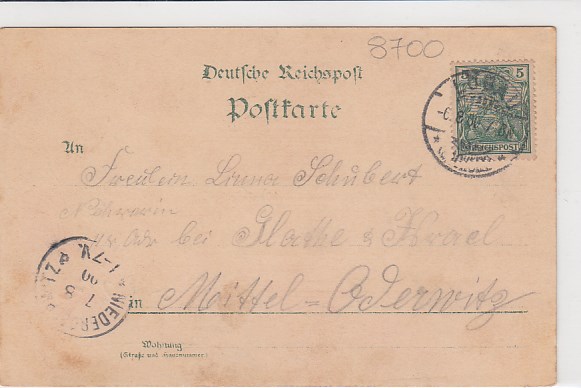 8700
Deutsche Reichspost
Postkarte
5
REICHSPOST
An
Fräulein Linna Schubert
Näherin
bei Glathe & Krael
in Mittel-Oderwitz
Wohnung
(Straße und Hausnummer)
NIEDER
1-7V.
7 8
00